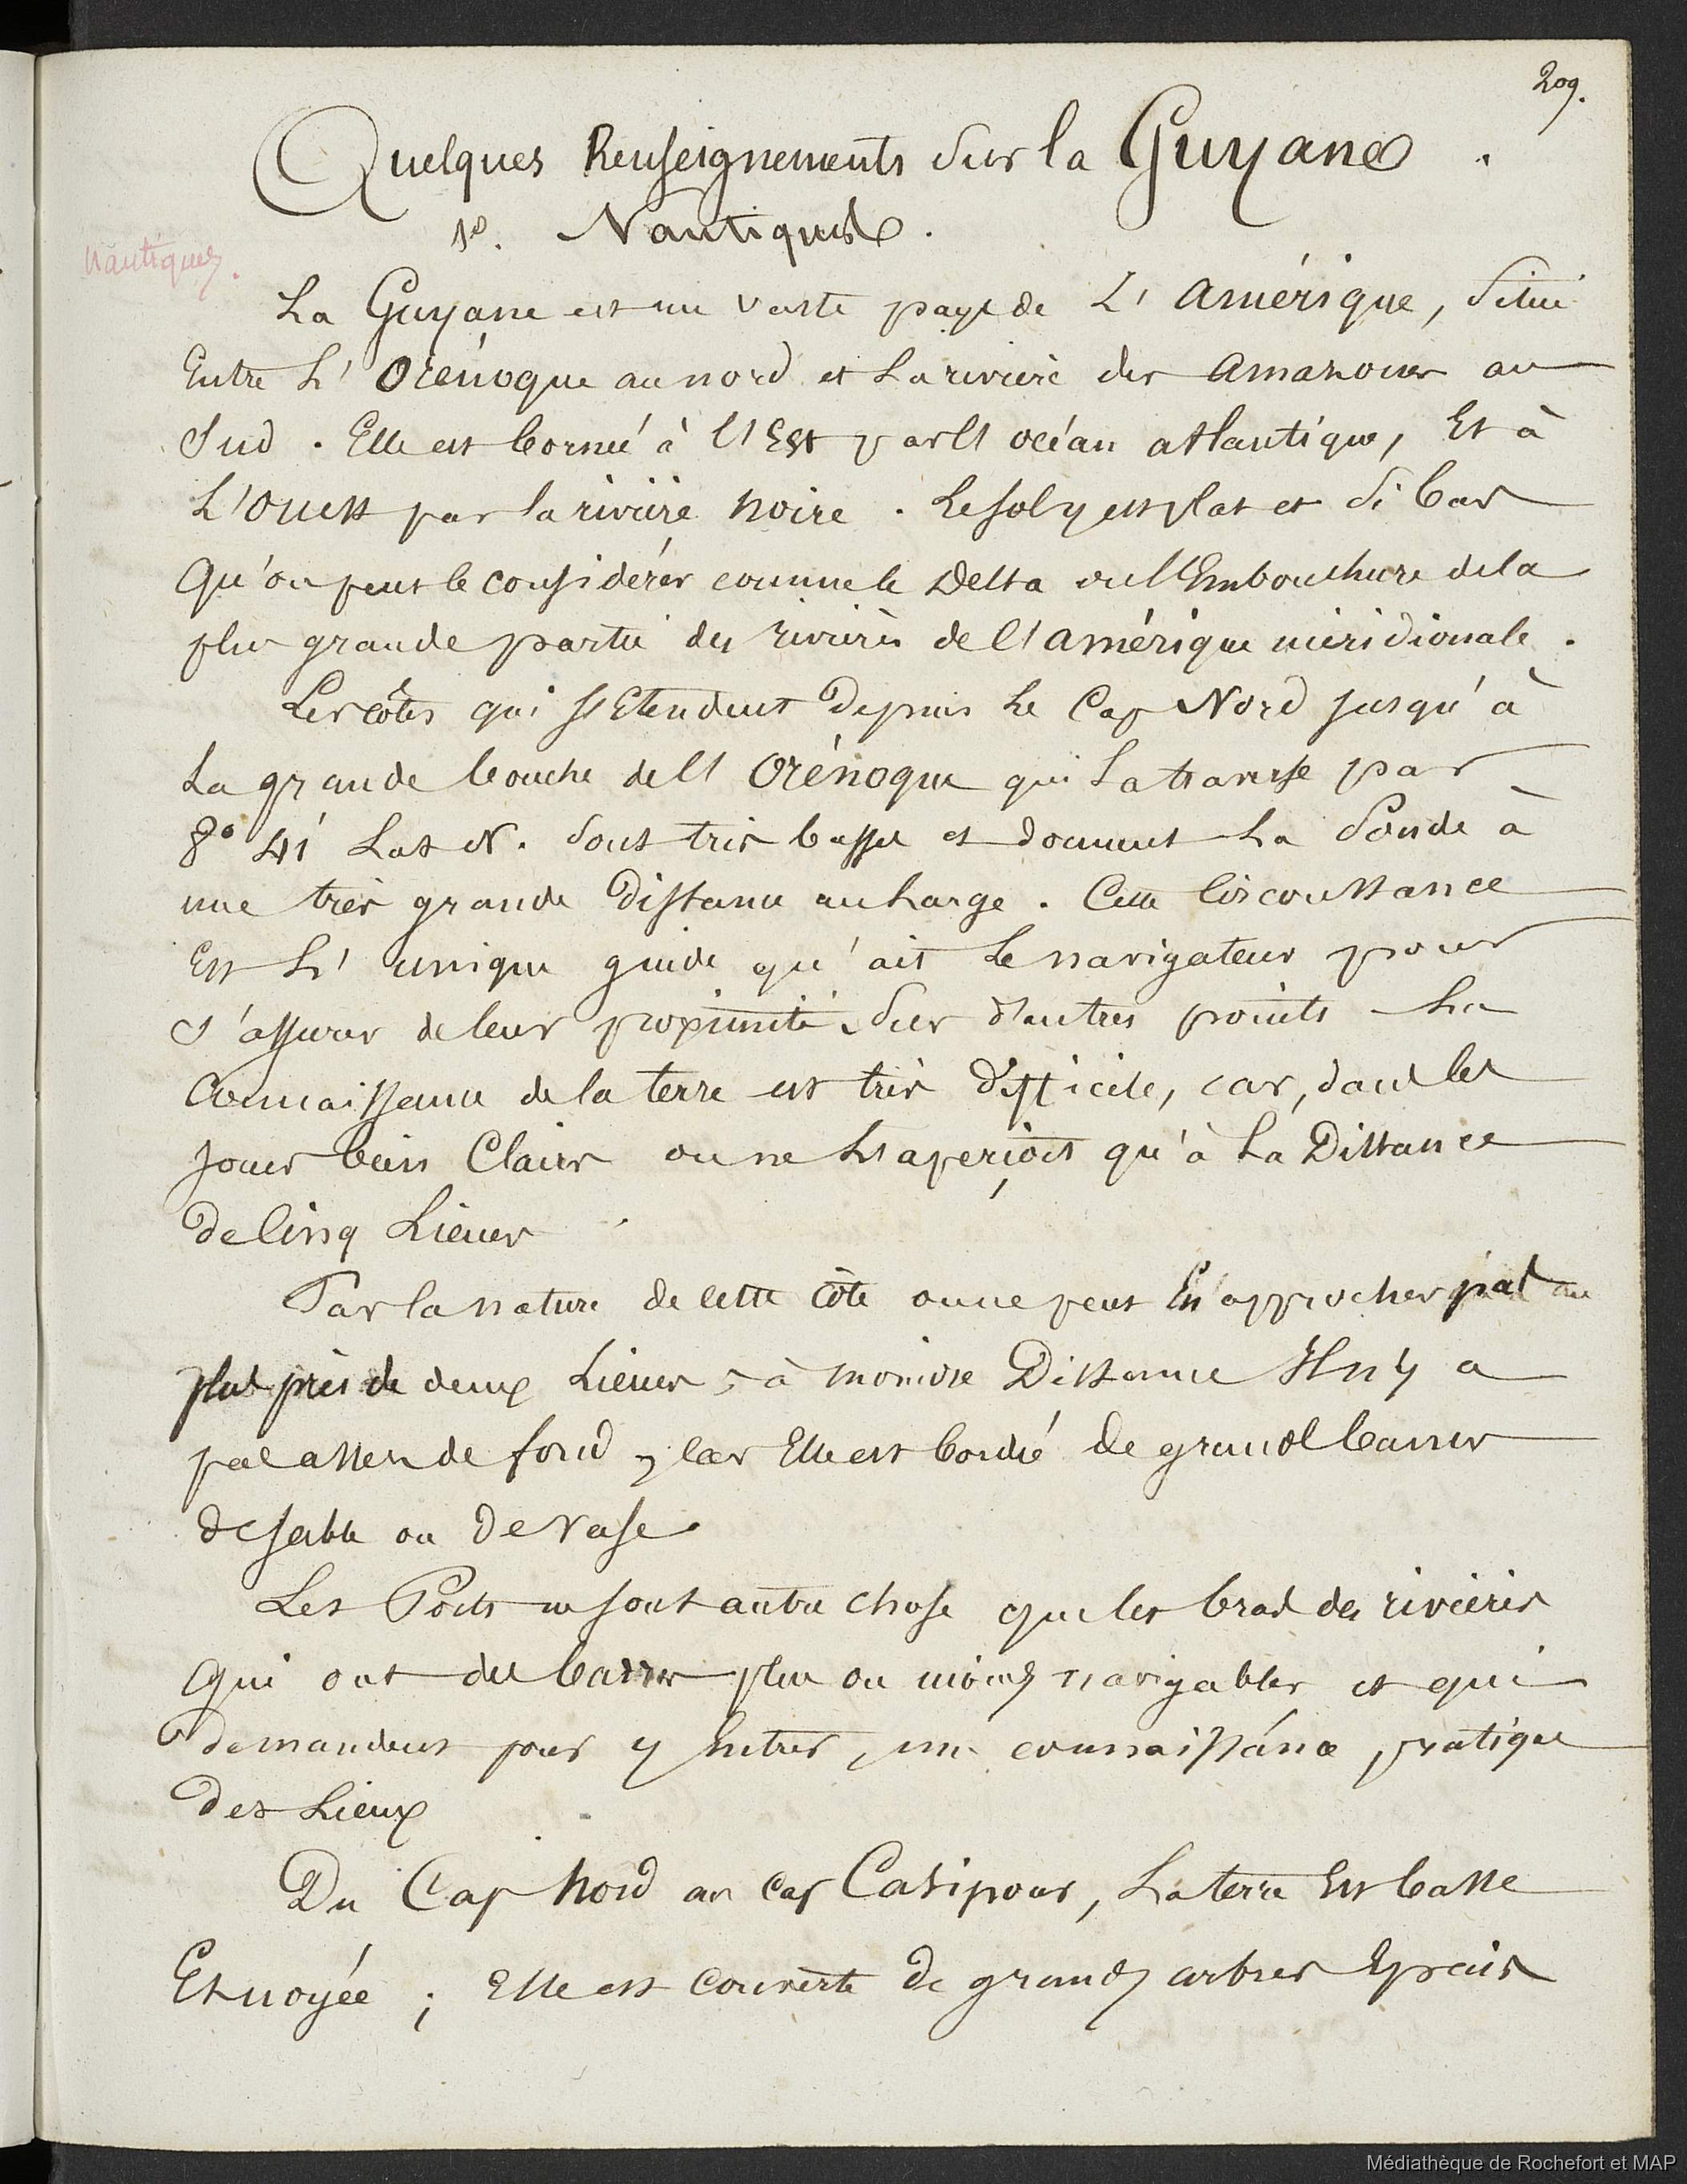 209.
Quelques Renseignements sur la Guyane.
1º. Nautiques.
Nautiques.
La Guyane est un vaste pays de L'Amérique, situé
Entre L'Orénoque au nord et La rivière des Amazones au
Sud. Elle est bornée à l'Est par l'océan atlantique, Et à
L'Ouest par la rivière Noire. Le sol y est plat et si bas
Qu'on peut le considérer comme le Delta ou l'Embouchure de la
plus grande partie des rivières de l'amérique méridionale.
Les côtes qui s'Etendent Depuis Le Cap Nord jusqu'à
La grande bouche de l'Orénoque qui La traverse par
8° 41' Lat N. sont très basses et donnent La Sonde à
une très grande Distance au Large. Cette Circonstance
Est L'unique guide qu'ait Le navigateur pour
s'assurer de leur proximité. Sur d'autres points La
Connaissance de la terre est très difficile, car, dans les
jours bien Clairs on ne L'aperçoit qu'à La Distance
De Cinq Lieues
Par la nature de cette côte on ne peut En approcher pas au
plus près de deux Lieues, à moindre Distance Il n'y a
pas assez de fond, car Elle est bordée de grands bancs
de sable ou De vase.
Les Ports ne sont autre chose que les bras des rivières
Qui ont des barres plus ou moins navigables et qui
Demandent pour y Entrer, une connaissance pratique
Des Lieux
Du Cap Nord au cap Casipour, La terre Est basse
Et noyée; Elle est couverte De grands arbres Epais
Médiathèque de Rochefort et MAP